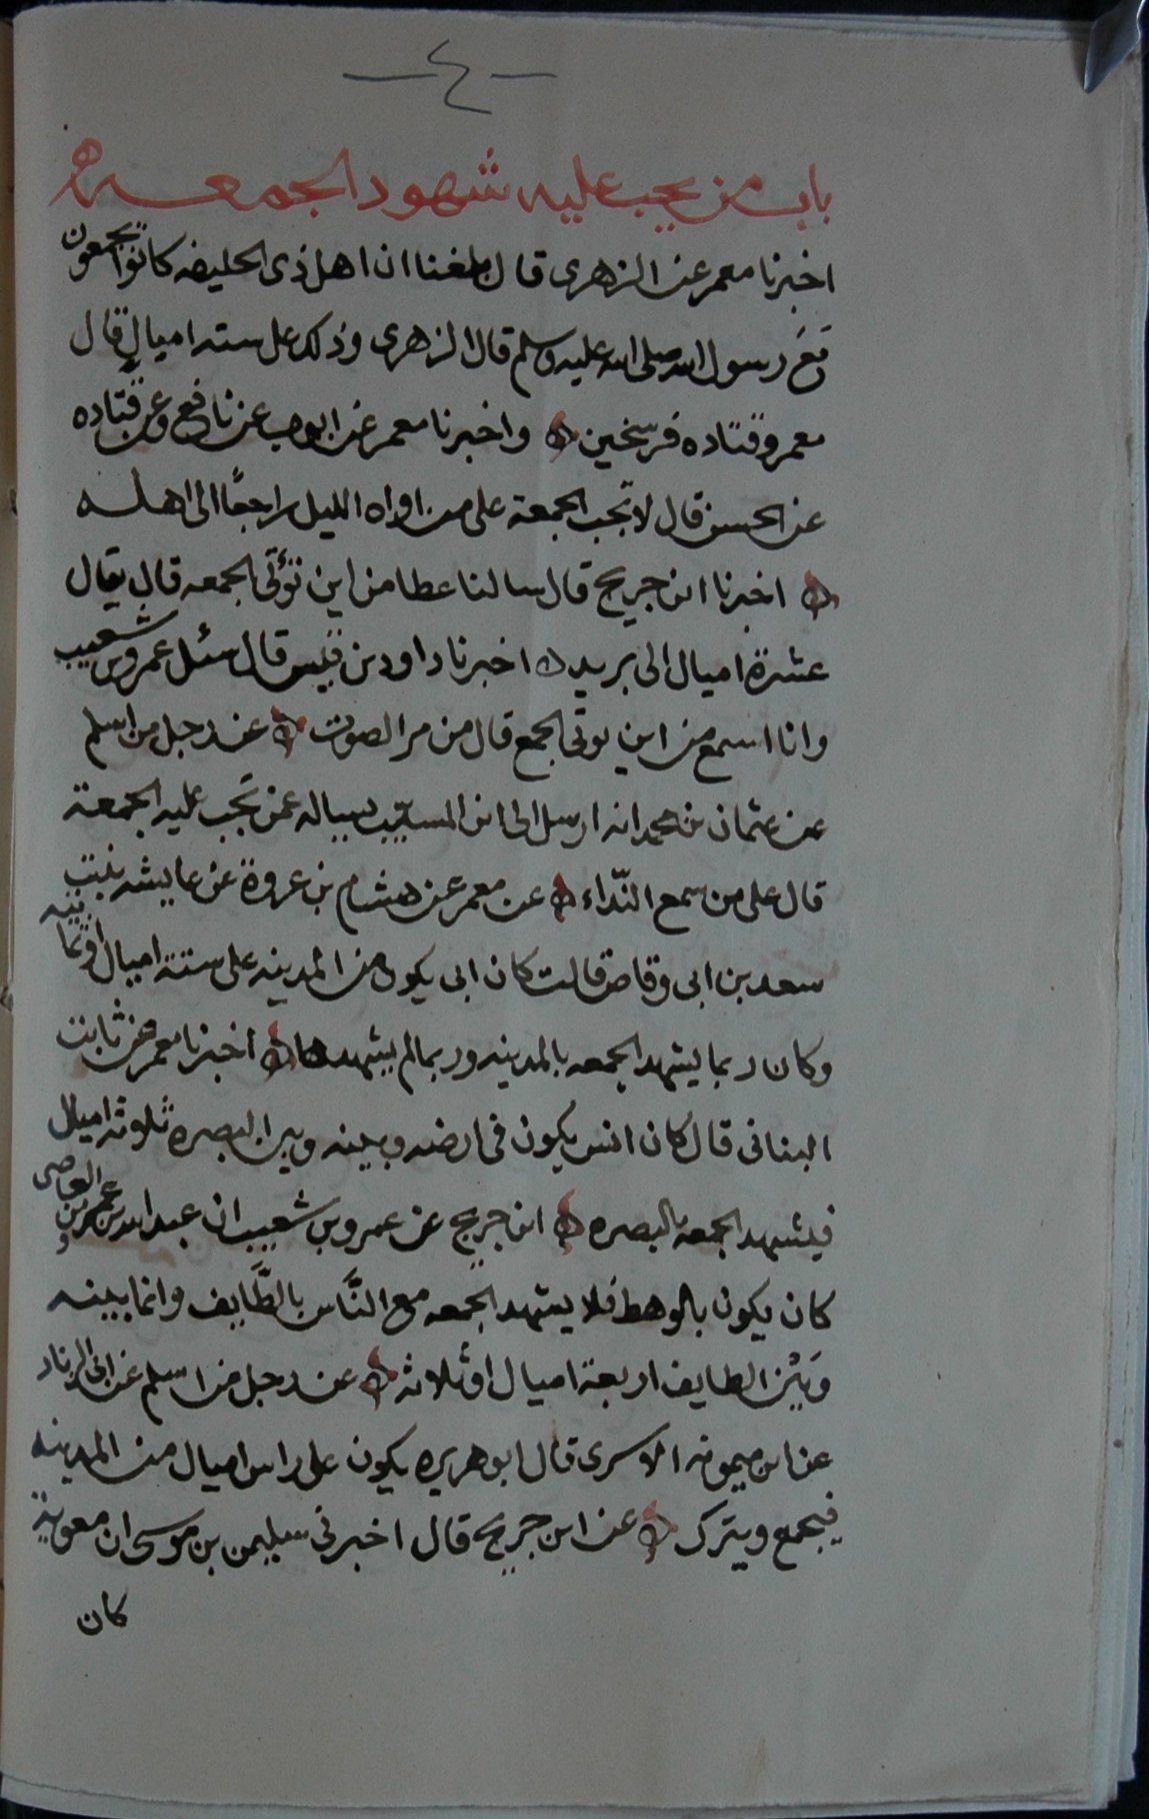 -٤-
باب من يجب عليه شهود الجمعه
اخبرنا معمر عن الزهرى قال بلغنا ان اهل ذى الحليفه كانوا يجمعون
مَعَ رسول الله صلى الله عليه وسلم قال الزهرى وذلك على سته اميالٍ قال
معمر وقتاده فرسخين ه واخبرنا معمر عن ايوب عن نافع وعن قتاده
عن الحسن قال لا تجب الجمعة على من اواه الليل راجعًا الى اهله
ه اخبرنا ابن جريج قال سالنا عطا من اين تؤتى الجمعه قال يقال
عشرة اميال الى بريد ه اخبرنا داود بن قيس قال سئل عمرو بن شعيب
وانا اسمع من اين يوتى الجمع قال من مر الصوت ه عن رجل من اسلم
عن عثمان بن محمد انه ارسل الى ابن المسيّب يساله عمن تجب عليه الجمعة
قال على من سمع النّداء ه عن معمر عن هشام بن عروة عن عايشه بنت
سعد بن ابى وقاص قالت كان ابى يكون من المدينه على ستة اميال او ثمانيه
وكان ربما يشهد الجمعه بالمدينه وربما لم يشهدها ه اخبرنا معمر عن ثابت
البنانى قال كان انس يكون فى ارضه وبينه وبين البصره ثلوثه اميال
فيشهد الجمعه بالبصره ه ابن جريج عن عمرو بن شعيب ان عبد الله بن عمرو بن العاصى
كان يكون بالوهط فلا يشهد الجمعه مع النَّاس بالطَّايف وانما بينه
وَبَيْن الطايف اربعة اميال او ثلاثه ه عن رجل من اسلم عن ابى الزناد
عن ابن ميمونه الاسرى قال ابو هريره يكون على راس اميال من المدينه
فيجمع ويترك ه عن ابن جريج قال اخبرنى سليمن بن موسى ان معوية
كان